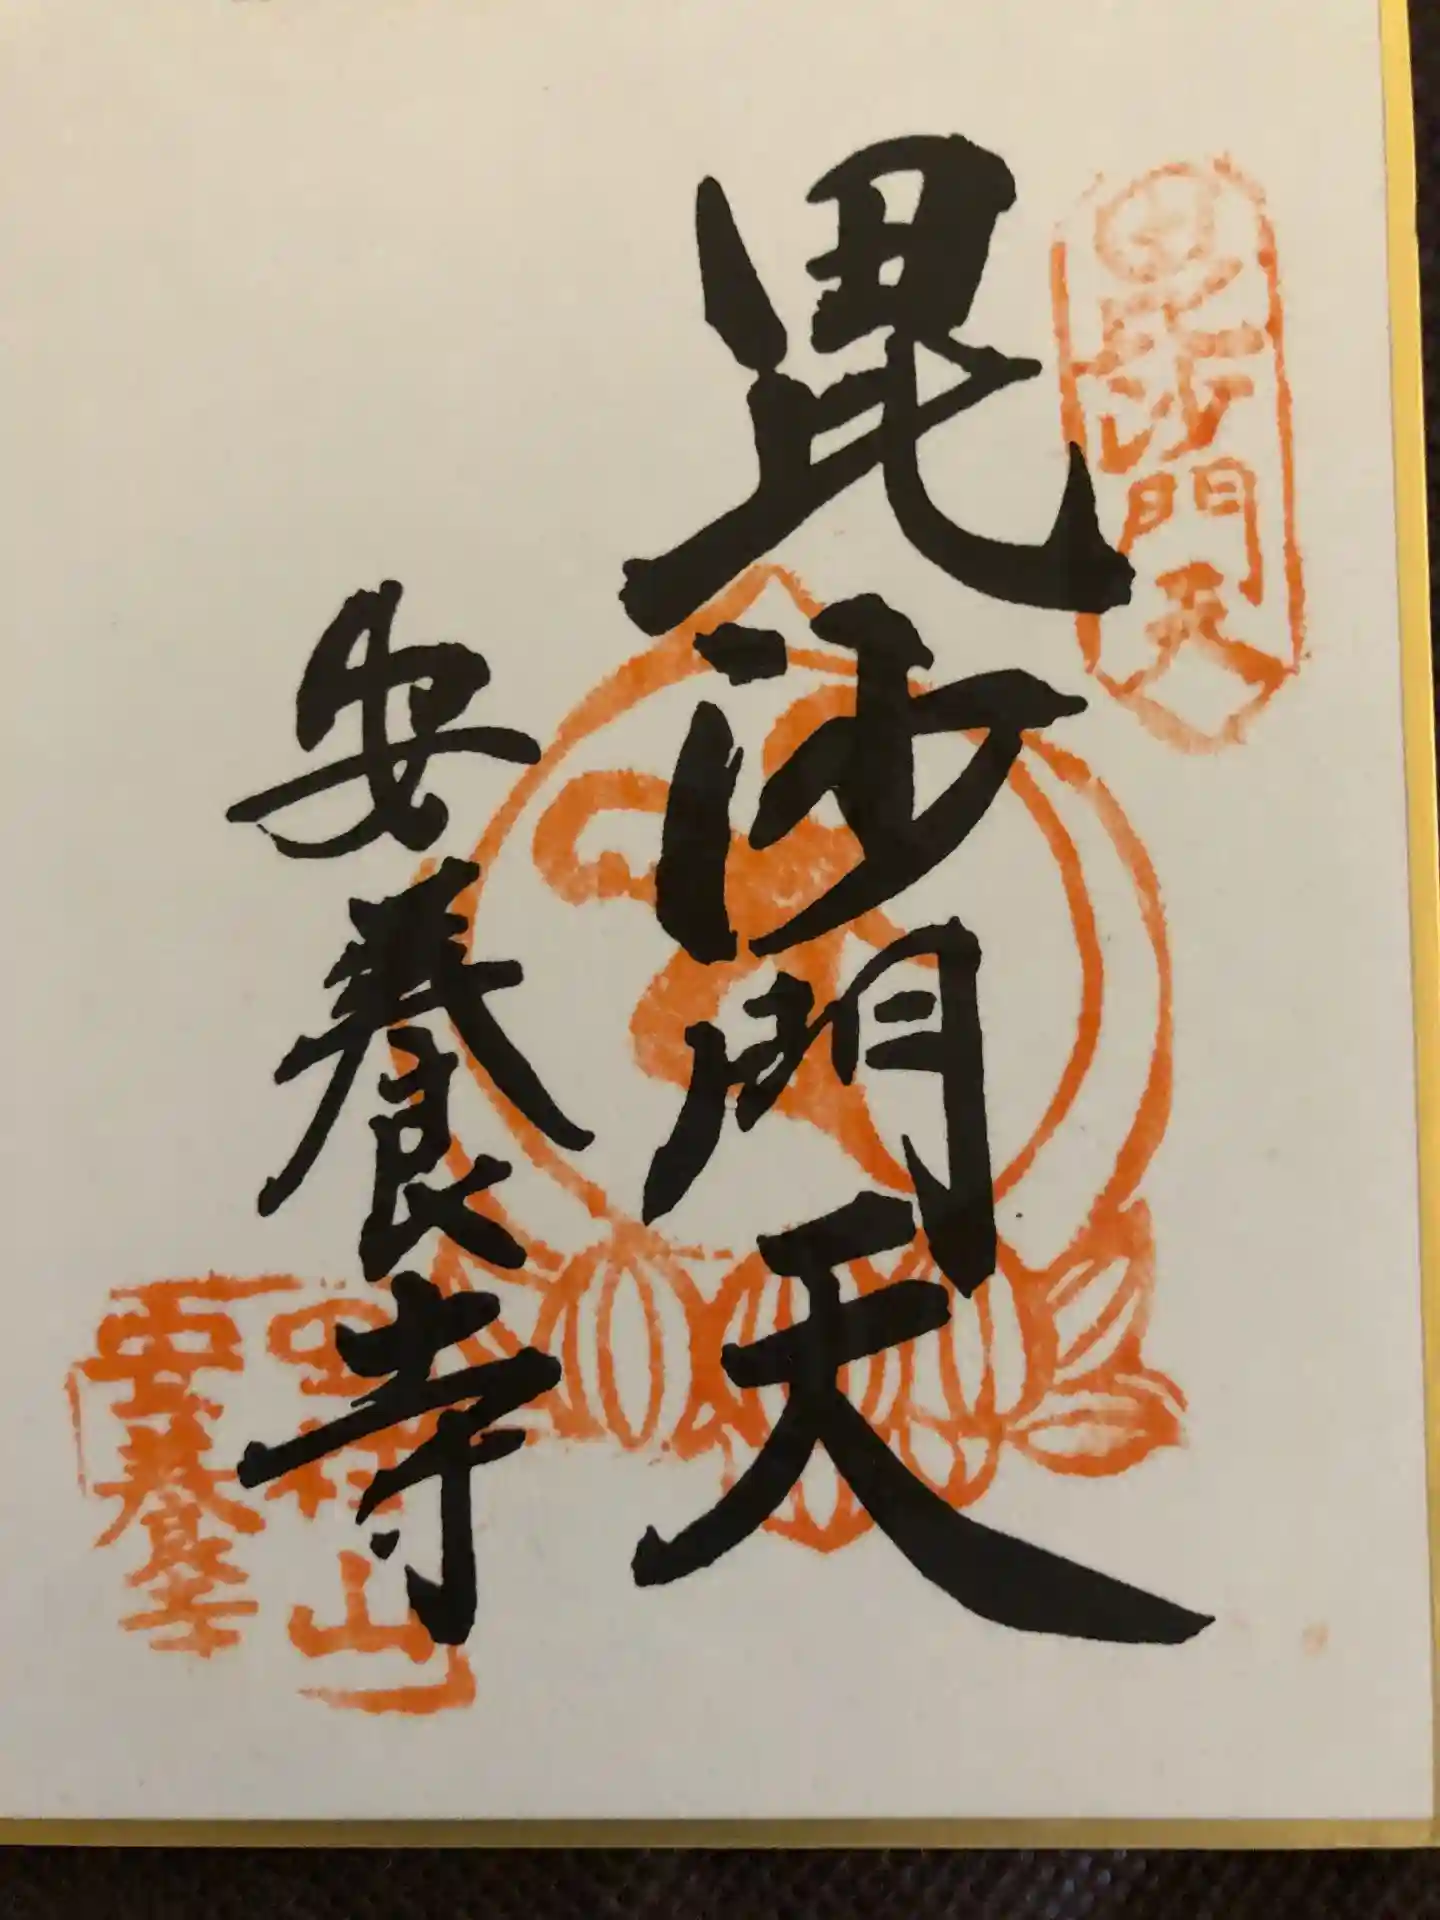 毘沙門天
毘沙門天
安養寺
山
安養寺